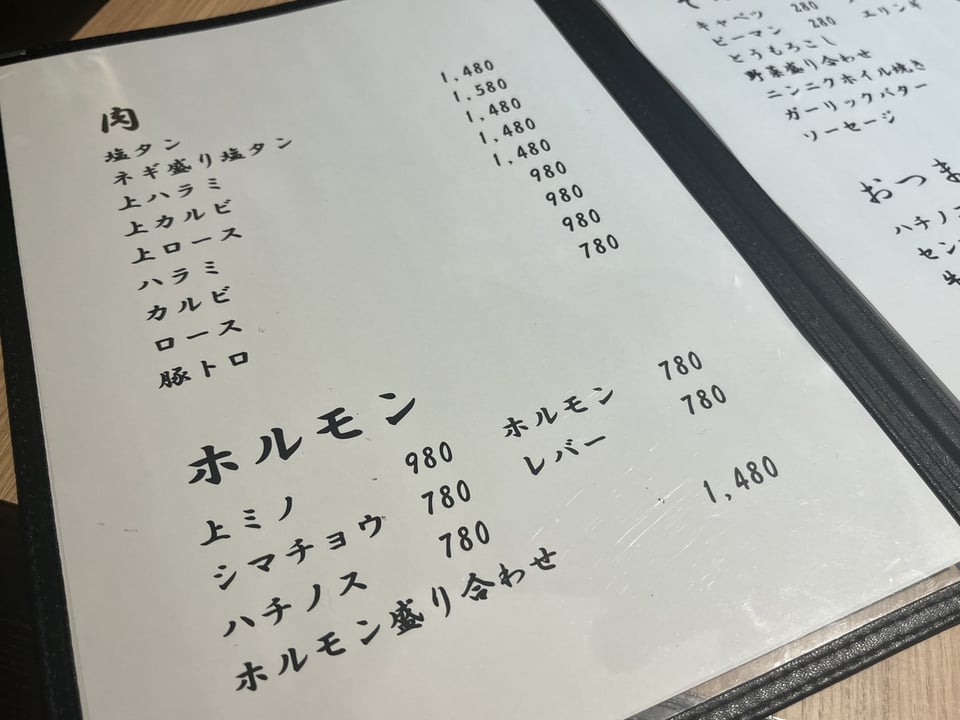 肉
塩タン 1,480
ネギ盛り塩タン 1,580
上ハラミ 1,480
上カルビ 1,480
上ロース 1,480
ハラミ 980
カルビ 980
ロース 980
豚トロ 780
ホルモン
上ミノ 980 ホルモン 780
シマチョウ 780 レバー 780
ハチノス 780
ホルモン盛り合わせ 1,480
キャベツ 280
ピーマン 280 エリンギ
とうもろこし
野菜盛り合わせ
ニンニクホイル焼き
ガーリックバター
ソーセージ
おつま
ハチノス
セン